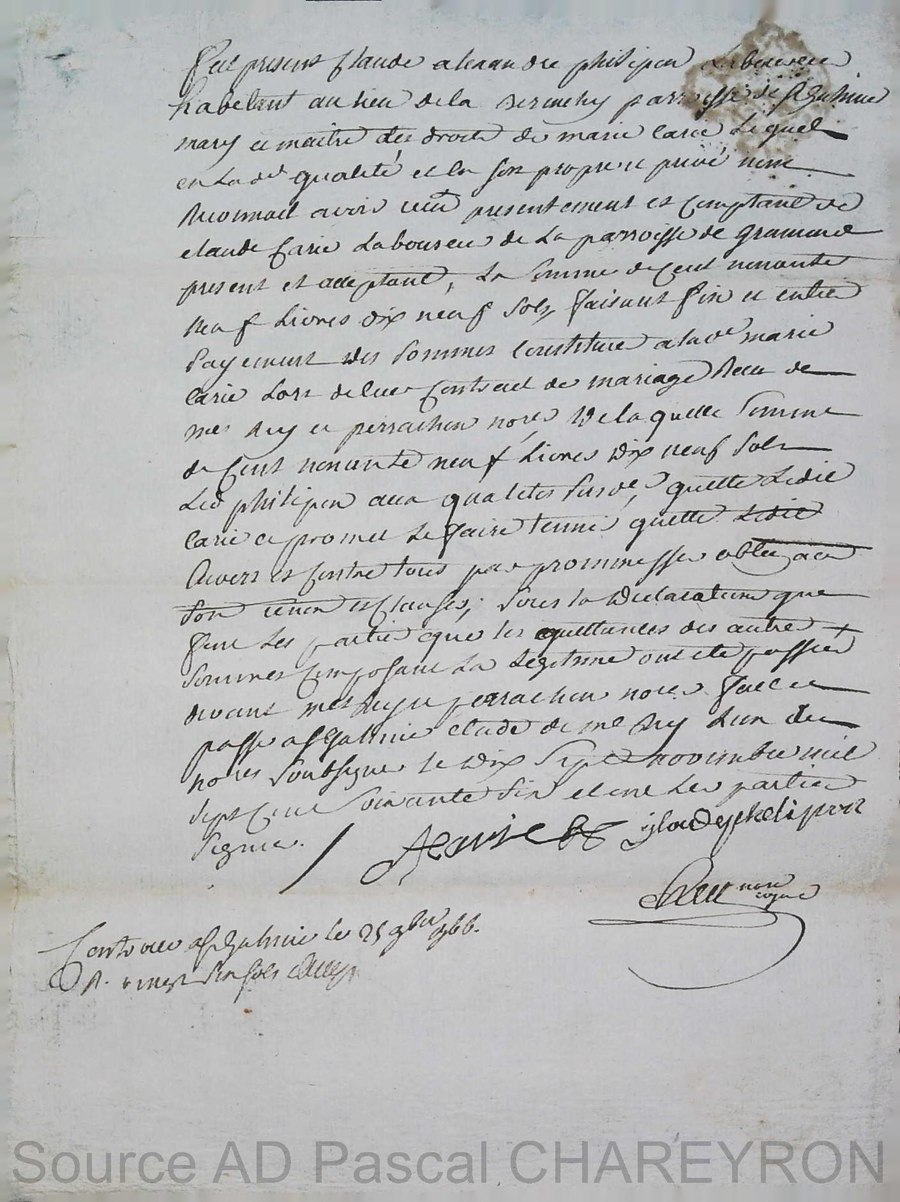 Fut present Claude alexandre philipon laboureur
habitant au lieu de la parroisse de St Galmier
mary et maitre des droits de marie carie Lequel
en La de qualité et en son propre et privé nom
Reconnoit avoir receu presentement et comptant de
claude Carie Laboureur de La parroisse de grammond
present et acceptant, La Somme de Cent nonante
neuf Livres dix neuf Sols, faisant fin et entier
payement des Sommes Constitué a lade marie
Carie Lors de leur Contract de mariage Receu de
mes Rey et perrachon nores De la quelle Somme
de Cent nonante neuf Livres dix neuf Sols
Led philipon aux qualites Susde, quitte Ledit
Carie et promet Le faire tenir quitte Ledit
Envers et Contre tous par promesse oblig aon
Sous La Declaration que
font Les partie que les quittances des autre
Sommes Composant La Legitime ont ete passée
devant mes Rey et perrachon nores fait et
passé a St Galmier etude de me Rey L'un des
nores Soubsigné le dix Sept novembre mil
Sept Cent Soixante Six et ont Les partie
Signé. /
clod philipon
Rey nore royal
Controllé a St Galmier le 25 9bre 1766.
R. vingt Six sols
Source AD Pascal CHAREYRON